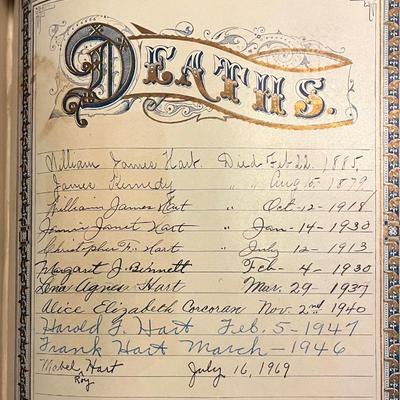 DEATHS.
William James Hart. Died Feb 22. 1885
James Kennedy " " Aug 15. 1879
William James Hart " Oct-12-1918
Jennie Janet Hart " Jan-14-1930
Christopher K. Hart " July 12-1913
Margaret J. Burnett Feb-4-1930
Lena Agnes Hart " Mar. 29-1937
Alice Elizabeth Corcoran Nov. 2nd 1940
Harold F. Hart Feb. 5-1947
Frank Hart March-1946
Mabel Hart July 16, 1969
Roy